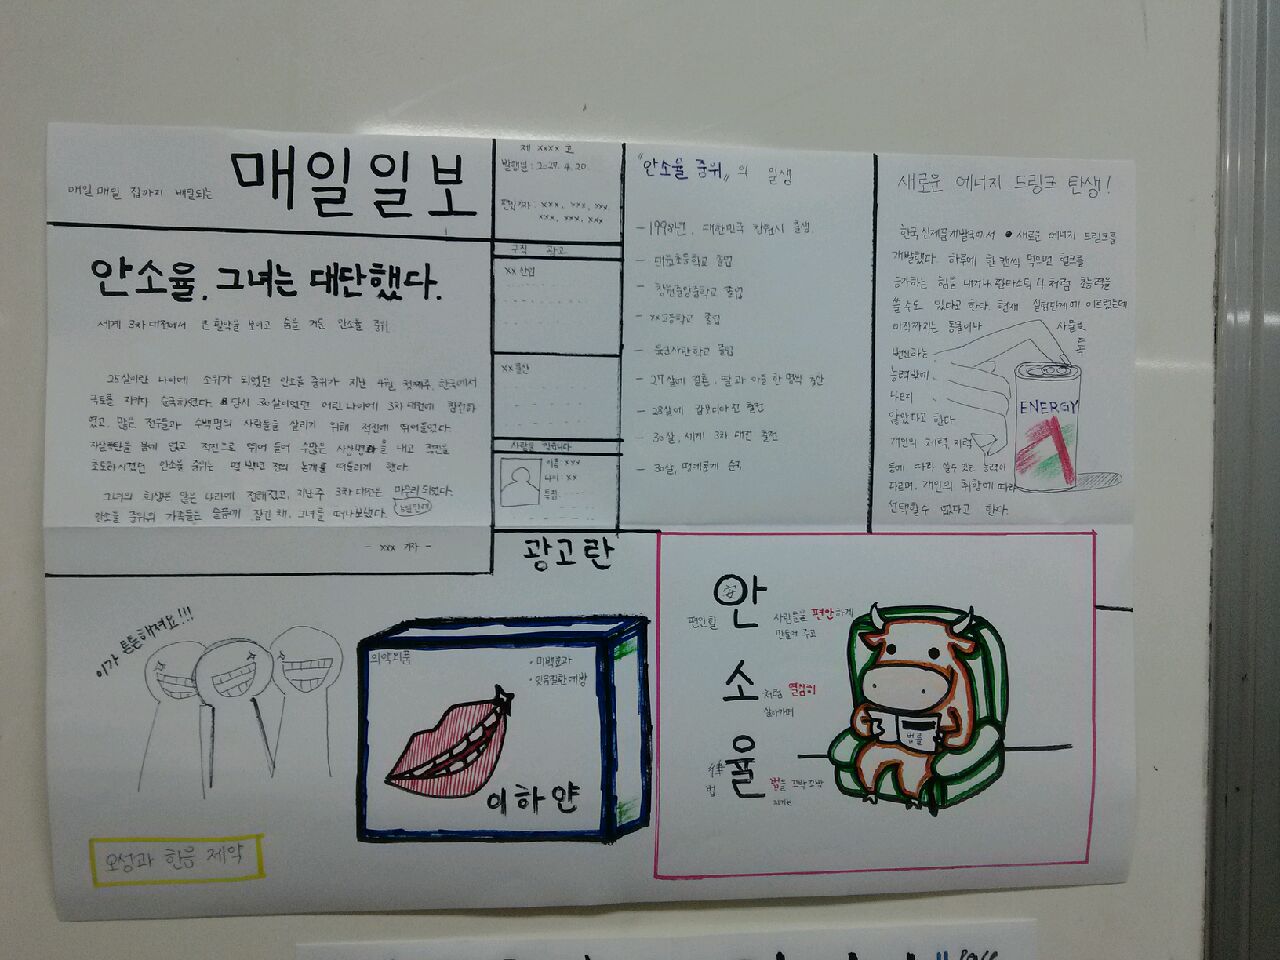 매일 매일 집까지 배달되는
매일일보
제 xxxx 호
발행일 : 2027. 4. 20.
편집기자 : xxx, xxx, xxx
xxx, xxx, xxx
안소율, 그녀는 대단했다.
세계 3차 대전에서 큰 활약을 보이고 숨을 거둔 안소율 중위
25살이란 나이에 소위가 되었던 안소율 중위가 지난 4월 첫째주, 한국에서
국토를 지키다 순국하였다. 당시 30살이었던 어린 나이에 3차 대전에 참전하
였고, 많은 전우들과 수백명의 사람들을 살리기 위해 적진에 뛰어들었다.
자살폭탄을 몸에 업고 적진으로 뛰어 들어 수많은 사상병을 내고 적군을
초토화시켰던 안소율 중위는
그녀의 희생은 많은 나라에 전해졌고, 지난주 3차 대전은 마무리 되었다.
안소율 중위의 가족들은 슬픔에 잠긴 채, 그녀를 떠나보냈다.
- xxx 기자 -
구직 광고
xx 산업
xx 물산
사람을 찾습니다
이름 : xxx
나이 : xx
특징 :
"안소율 중위"의 일생
- 1998년, 대한민국 창원시 출생
초등학교 졸업
- 창원중앙중학교 졸업
- xx고등학교 졸업
- 육군사관학교 졸업
- 27살에 결혼, 딸과 아들 한 명씩 출산
- 28살에 출전
- 30살, 세계 3차 대전 출전
- 30살, 명예롭게 순국
새로운 에너지 드링크 탄생!
한국신제품개발국에서 새로운 에너지 드링크를
개발했다. 하루에 한 캔씩 먹으면 헐크를
능가하는 힘을 내거나 판타스틱 4 처럼 초능력을
쓸 수도 있다고 한다. 현재 실험단계에 이르렀는데
아직까지는 동물이나 사물로
변신하는
능력밖에
나오지
않았다고 한다.
개인의 체력, 지력
등에 따라 쓸 수 있는 능력이
다르며, 개인의 취향에 따라
선택할 수 없다고 한다.
ENERGY
광고란
이가 튼튼해져요!!!
의약외품
• 미백효과
• 잇몸질환 예방
이하얀
오성과 한음 제약
편안할 안 사람들을 편안하게
만들어 주고
소 처럼 열심히
살아가며
律 율 법을 꼬박꼬박
법 지키는
법률